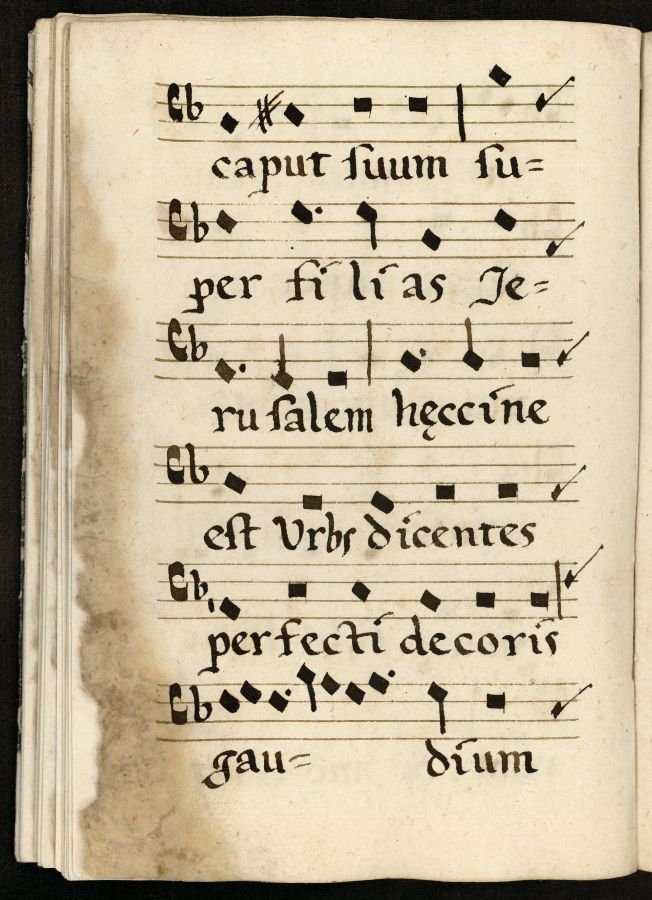 caput ſuum ſu=
per fi li as Je=
ru ſalem hęccine
eſt Vrbs dicentes
perfecti decoris
gau= dium